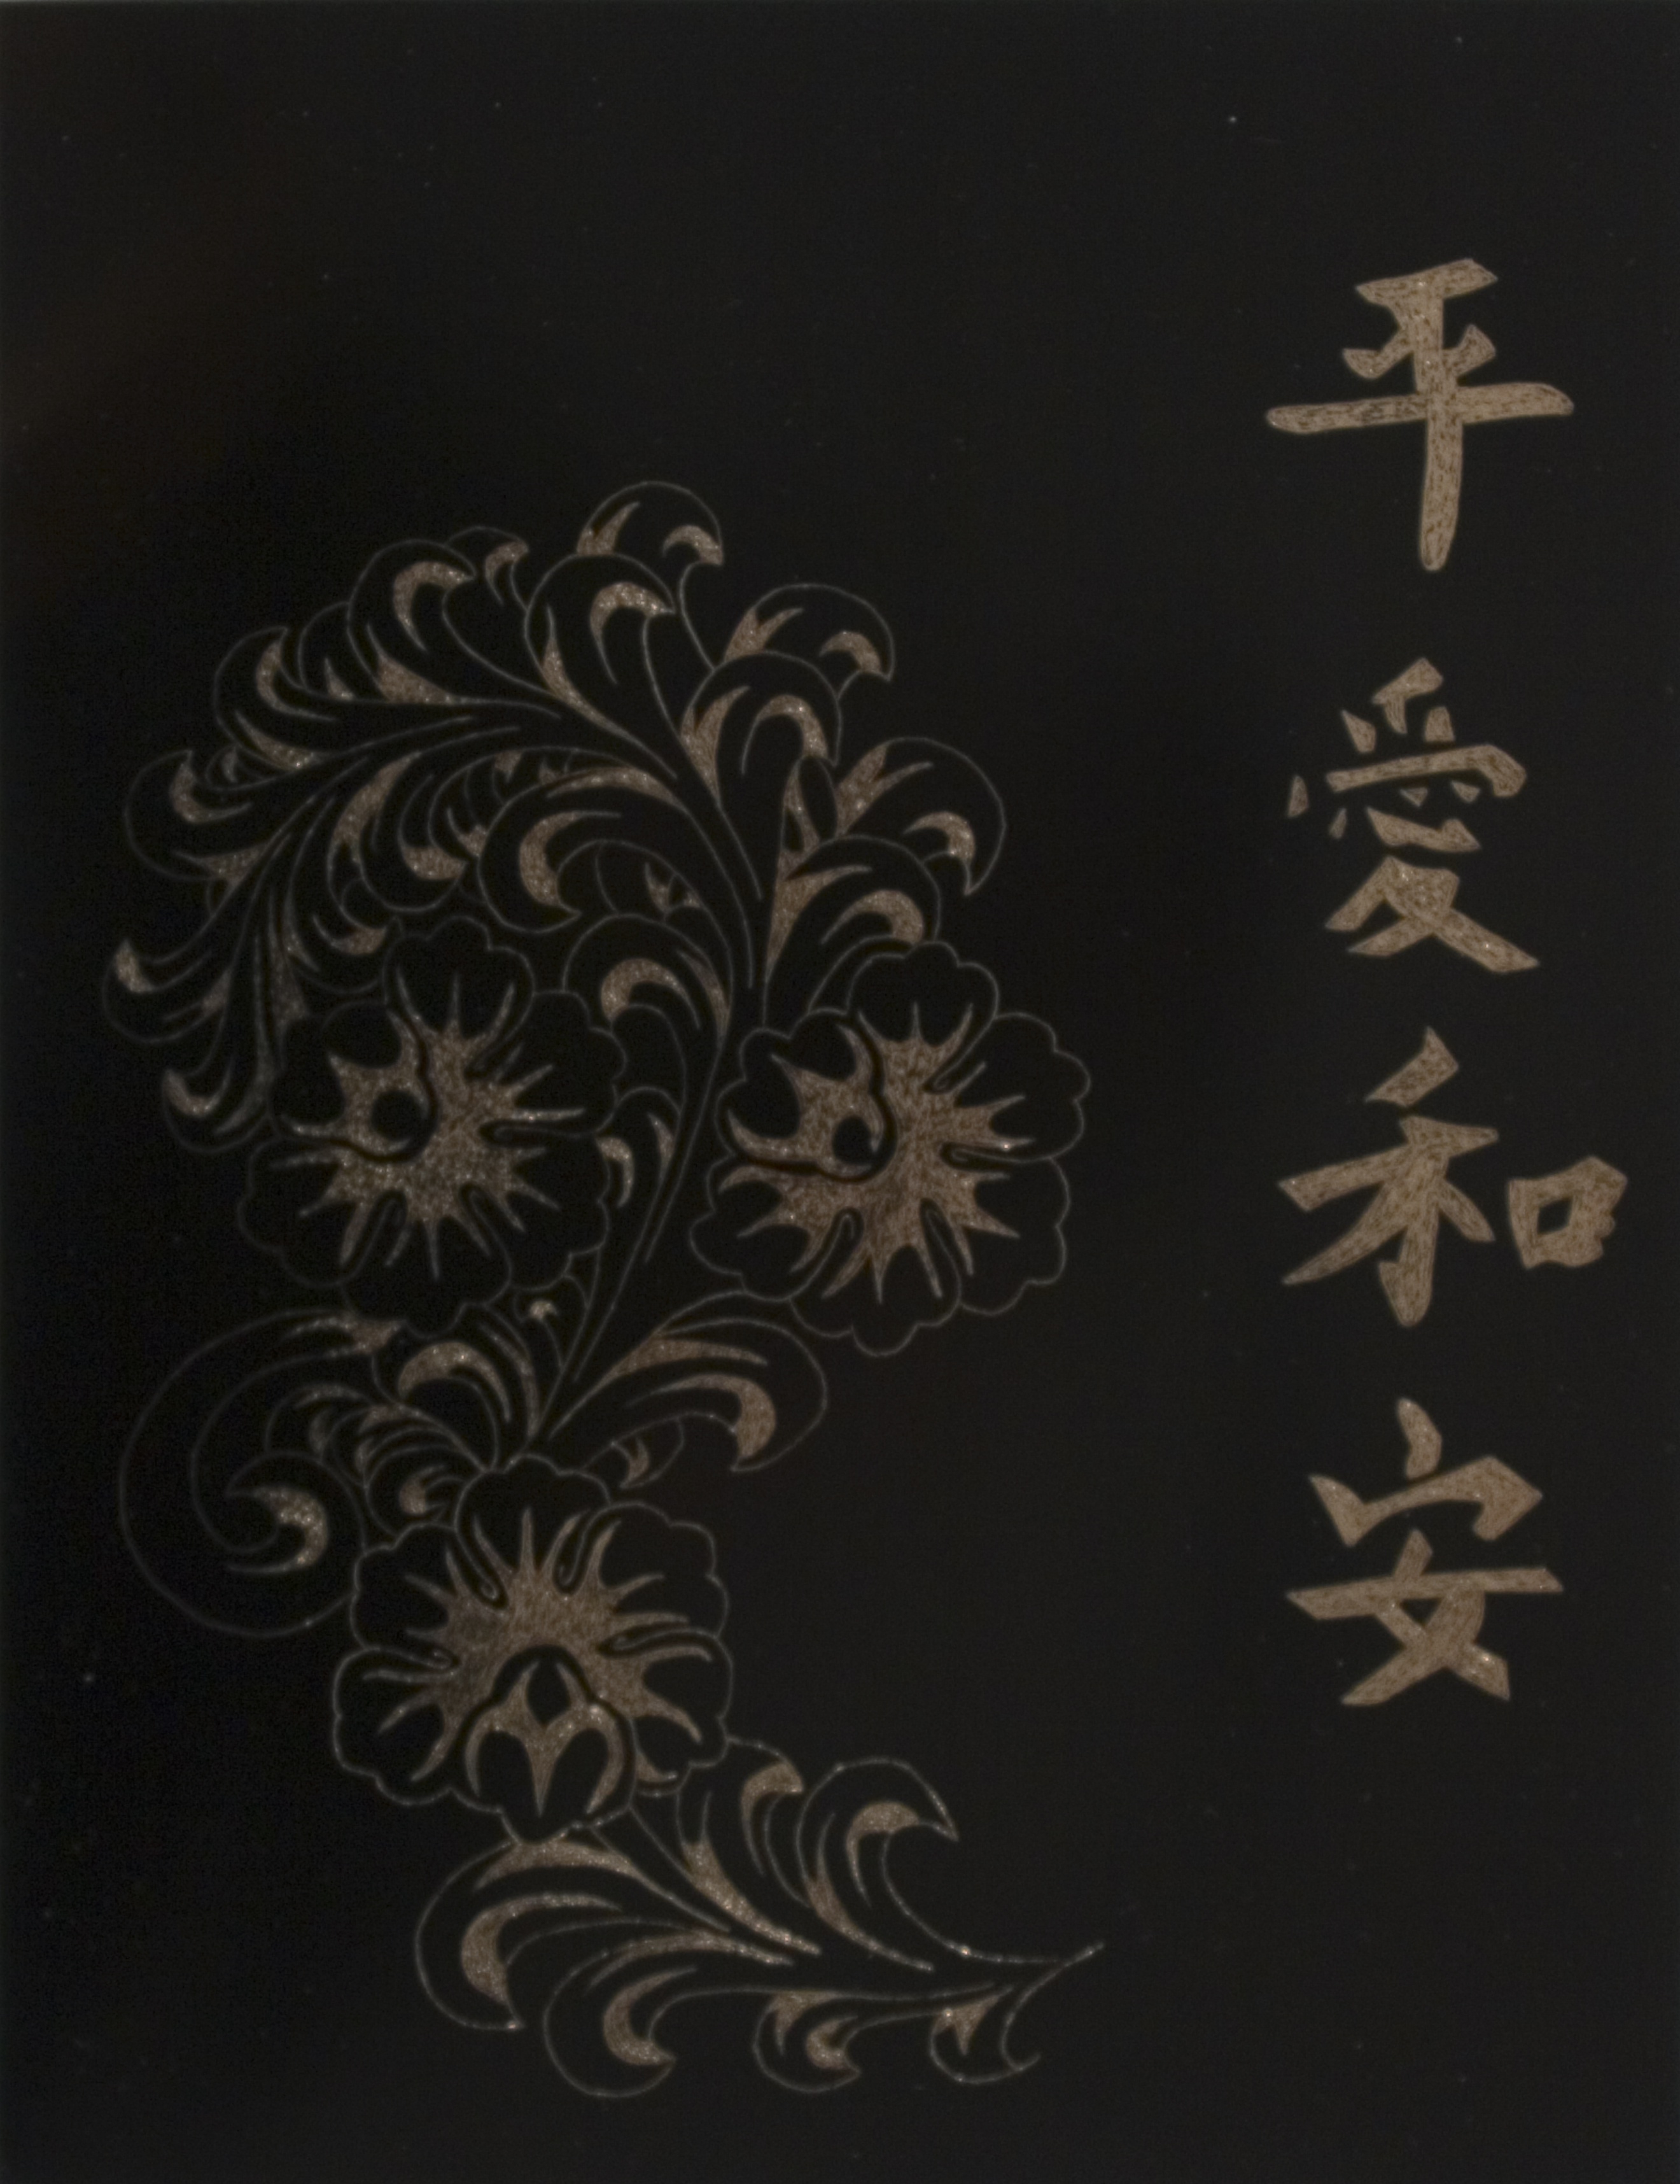 平愛和安